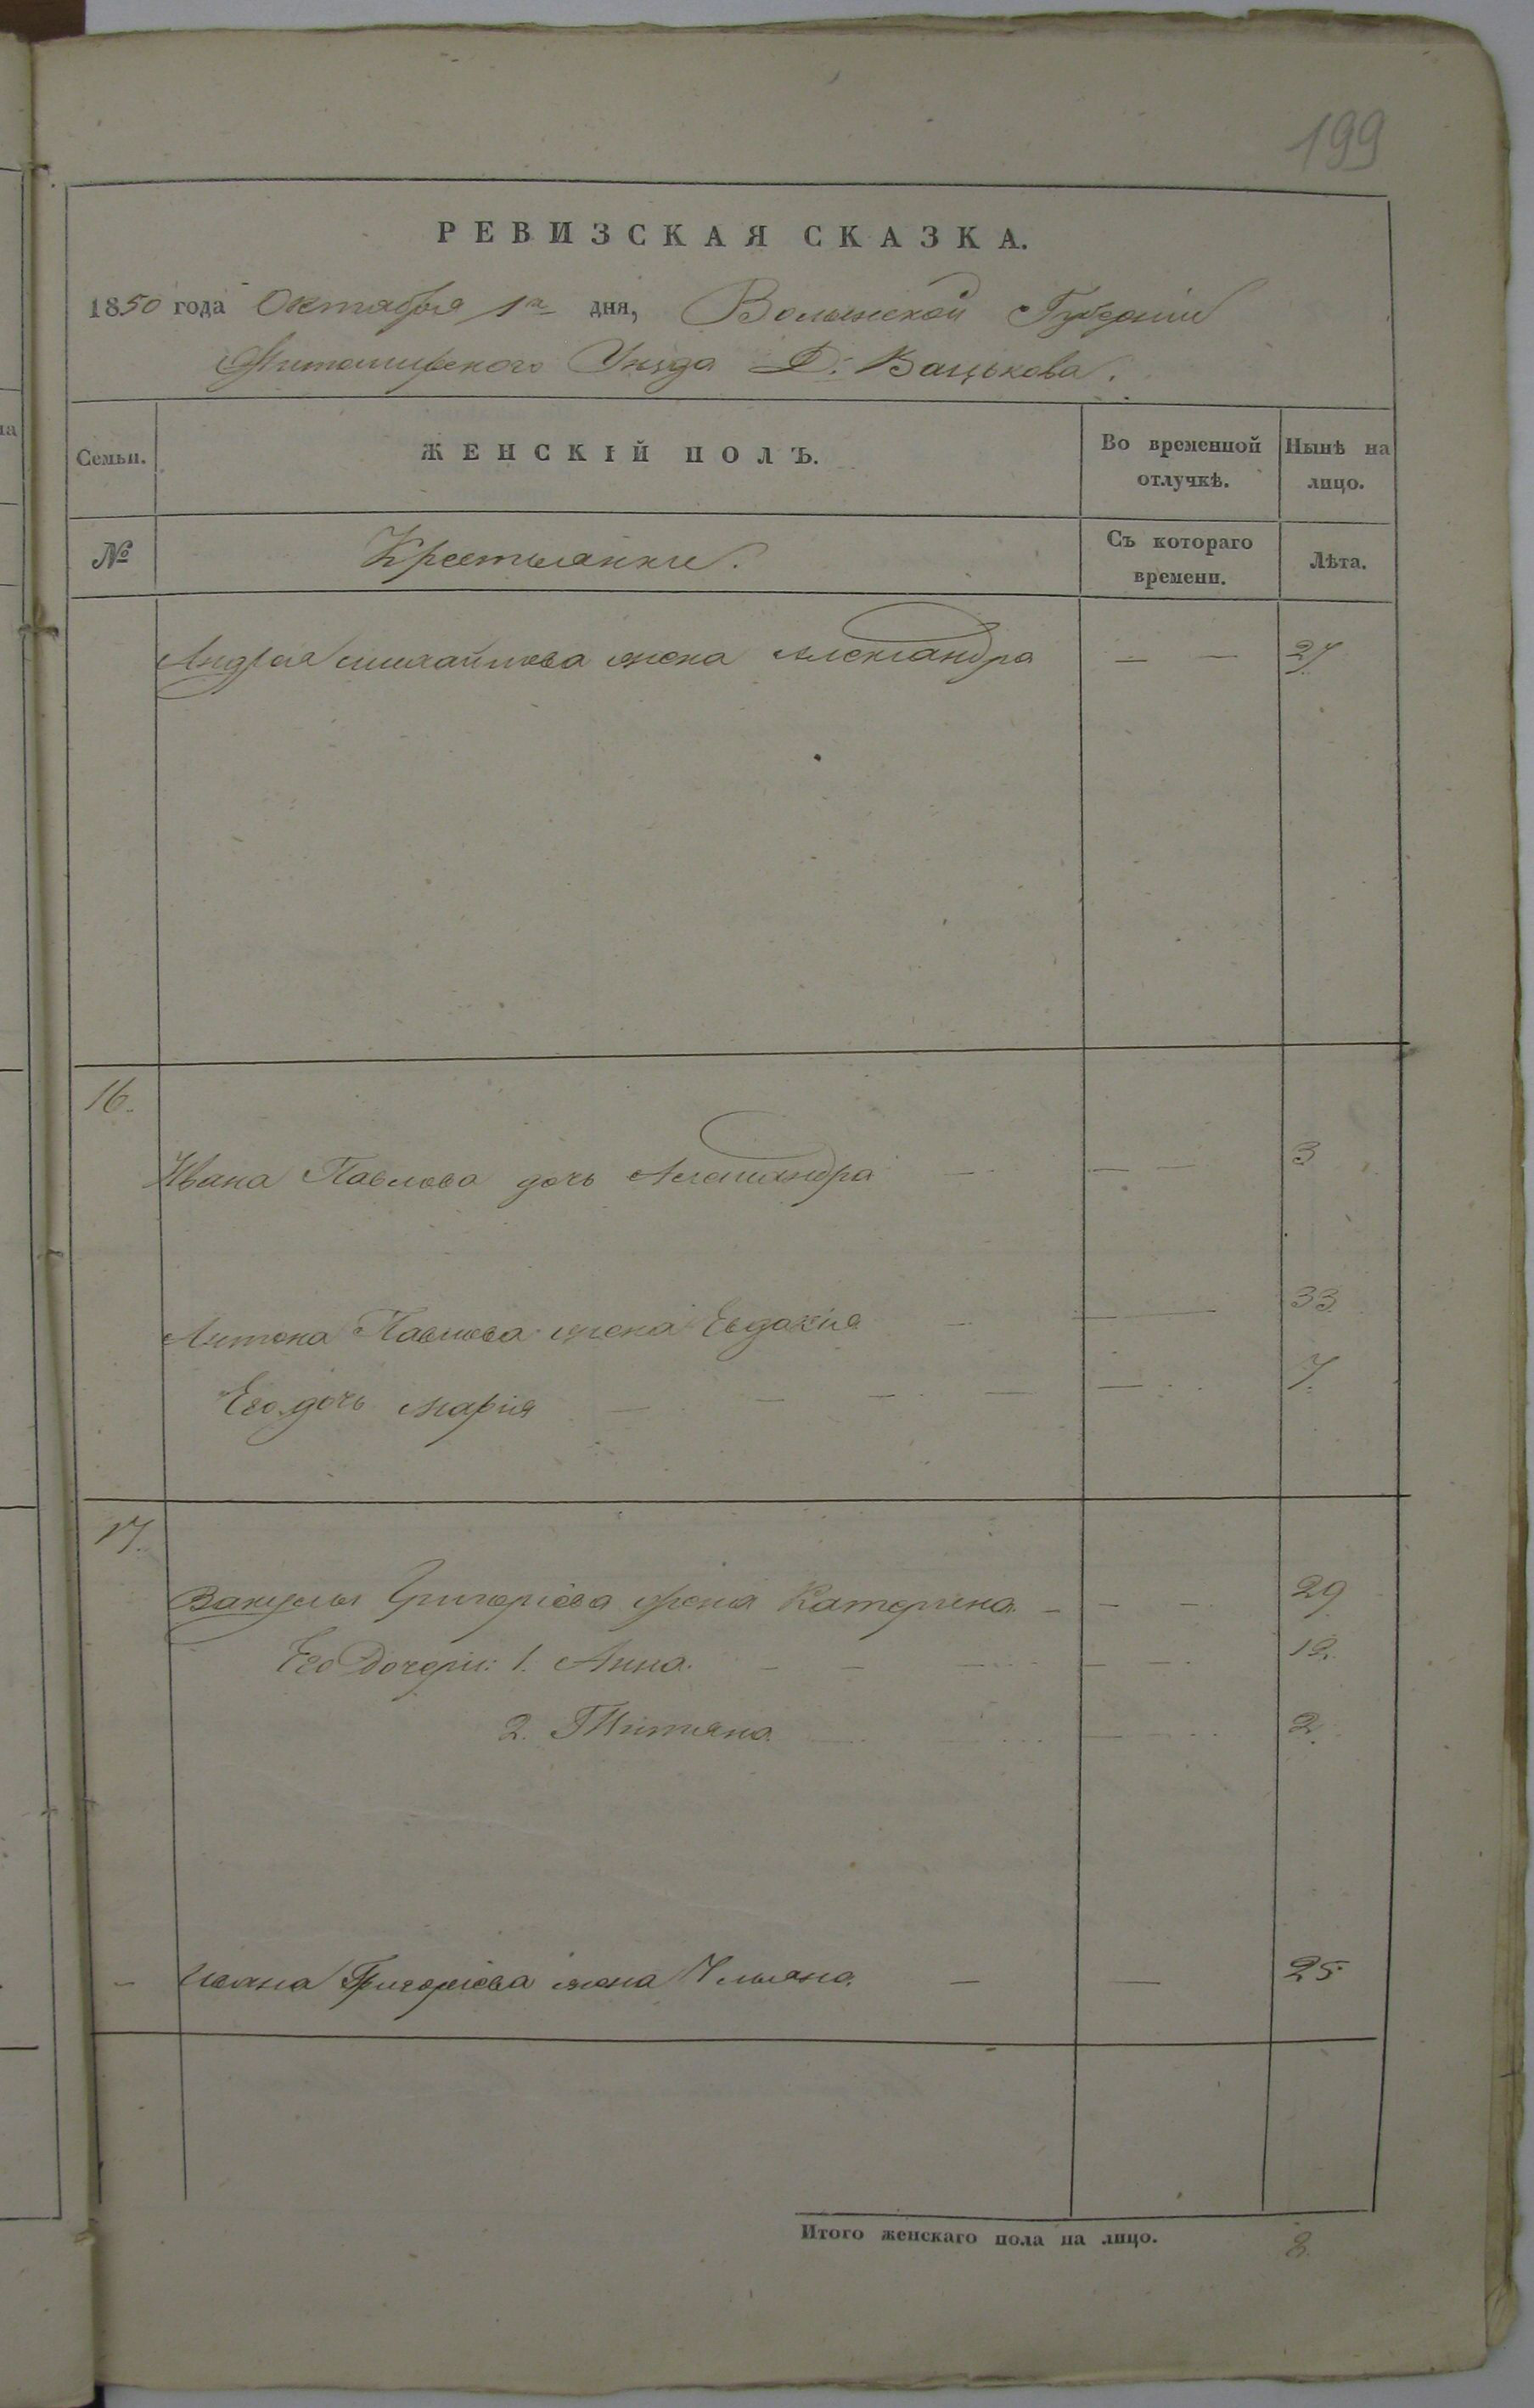 199
РЕВИЗСКАЯ СКАЗКА.
1850 года Октября 1го дня, Волынской Губернии
Житомирского Уезда Д. Вацькова.
Семьи.
ЖЕНСКІЙ ПОЛЪ.
Во временной отлучкѣ.
Нынѣ на лицо.
№
Крестьянки.
Съ котораго времени.
Лѣта.
Андрея Михайлова жена Александра — — 27.
16.
Ивана Павлова дочь Александра — — — 3
Антона Павлова жена Евдокия — — 33.
Его дочь Мария — — — — — 7.
17.
Вакулы Григоріева жена Катерина — — — 29
Его Дочери: 1. Анна. — — — — — 12.
2. Титяна — — — 2.
— Ивана Григоріева жена Ульяна — — 25
Итого женскаго пола на лицо. 8.